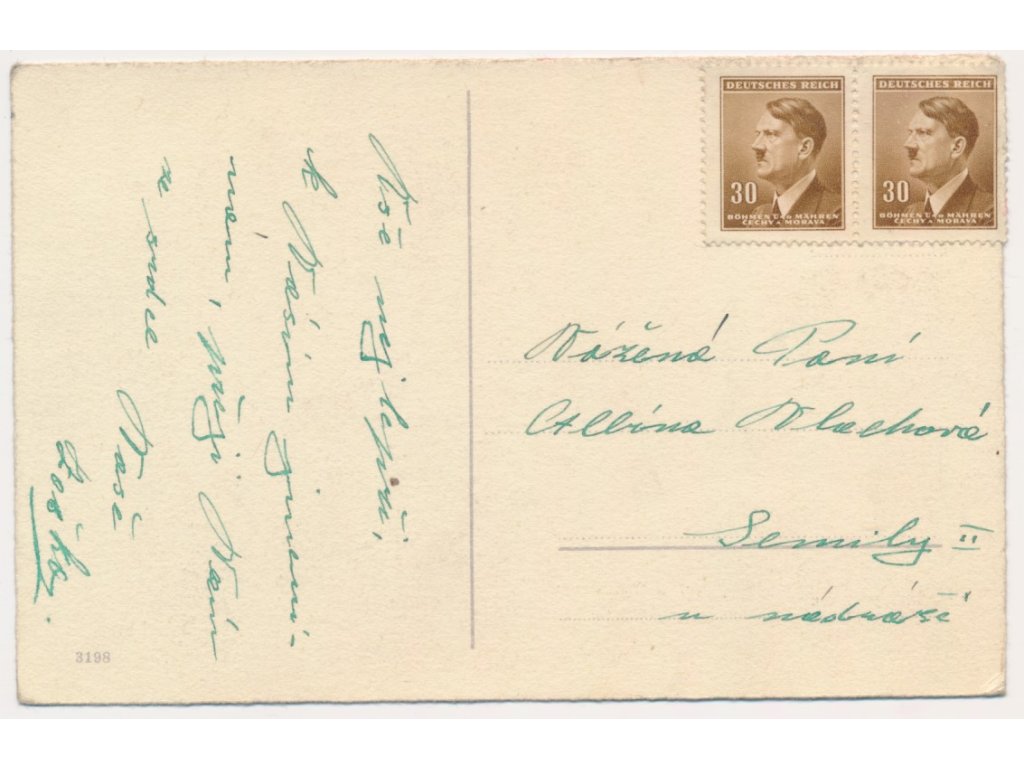 Vše nejlepší,
k Vašim jmeni-
nám, přeji Vám
ze srdce
Vaše
DEUTSCHES REICH
30
BÖHMEN UND MÄHREN
ČECHY A MORAVA
DEUTSCHES REICH
30
BÖHMEN UND MÄHREN
ČECHY A MORAVA
Vážená Paní
Albína Vlachová
Semily II
u nádraží
3198